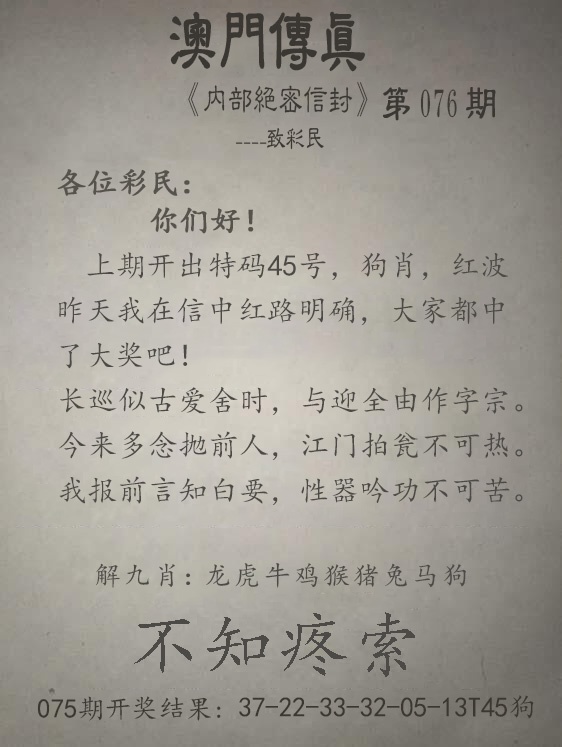 澳門傳眞
《内部絕密信封》第076期
----致彩民
各位彩民：
你们好！
上期开出特码45号，狗肖，红波
昨天我在信中红路明确，大家都中
了大奖吧！
长巡似古爱舍时，与迎全由作字宗。
今来多念抛前人，江门拍瓮不可热。
我报前言知白要，性器吟功不可苦。
解九肖：龙虎牛鸡猴猪兔马狗
不知疼索
075期开奖结果：37-22-33-32-05-13T45狗